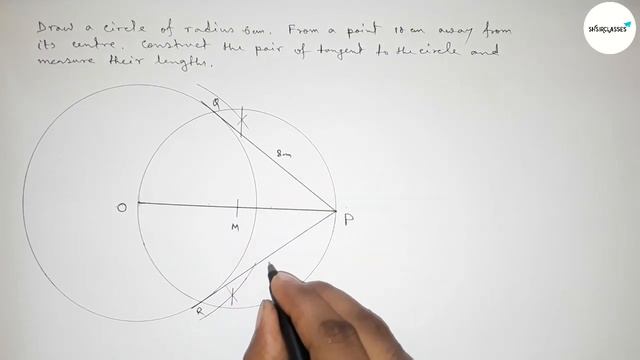 Draw a circle of radius 6cm. From a point 10 cm away from
its centre. Construct the pair of tangent to the circle and
measure their lengths.
SHSIRCLASSES
Q
8cm
O
M
P
R